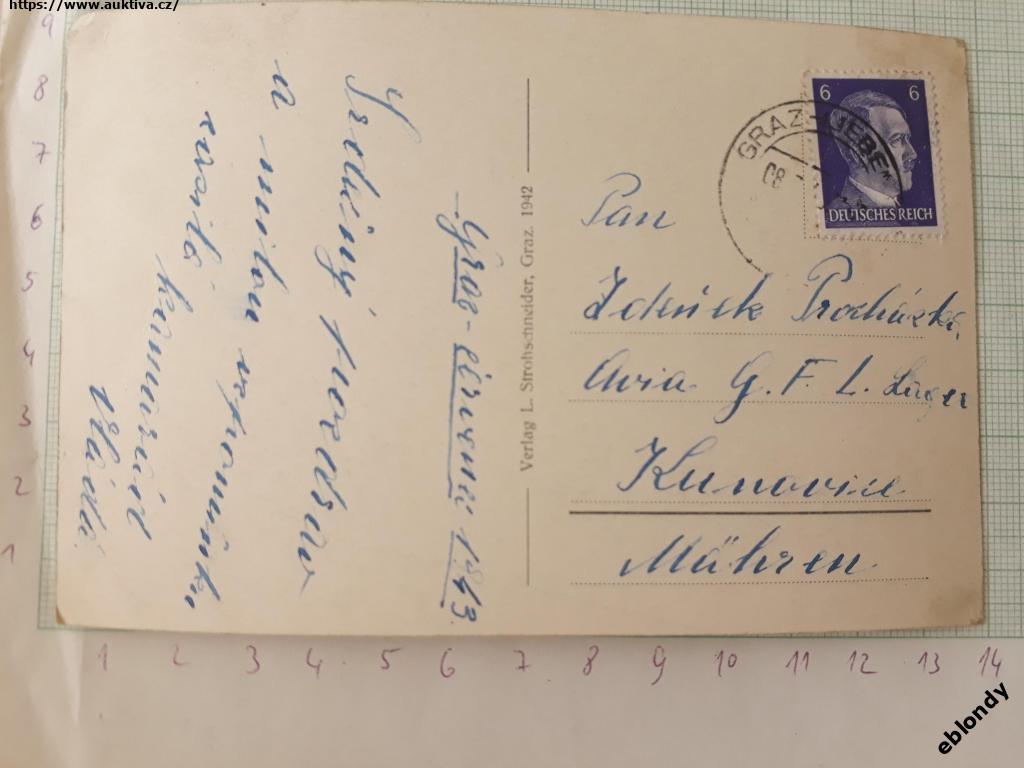 https://www.auktiva.cz/
Graz - červenec 1943.
Srdečný pozdrav
a milou vzpomínku
zasílá
kamarád
Vláďa.
Verlag L. Strohschneider, Graz. 1942
6 6
DEUTSCHES REICH
GRAZ LIEBE
08
Pan
Zdeněk Procházka,
Avia G. F. L. Lager
Kunovice
Mähren
9
8
7
6
5
4
3
2
1
1 2 3 4 5 6 7 8 9 10 11 12 13 14
eblondy